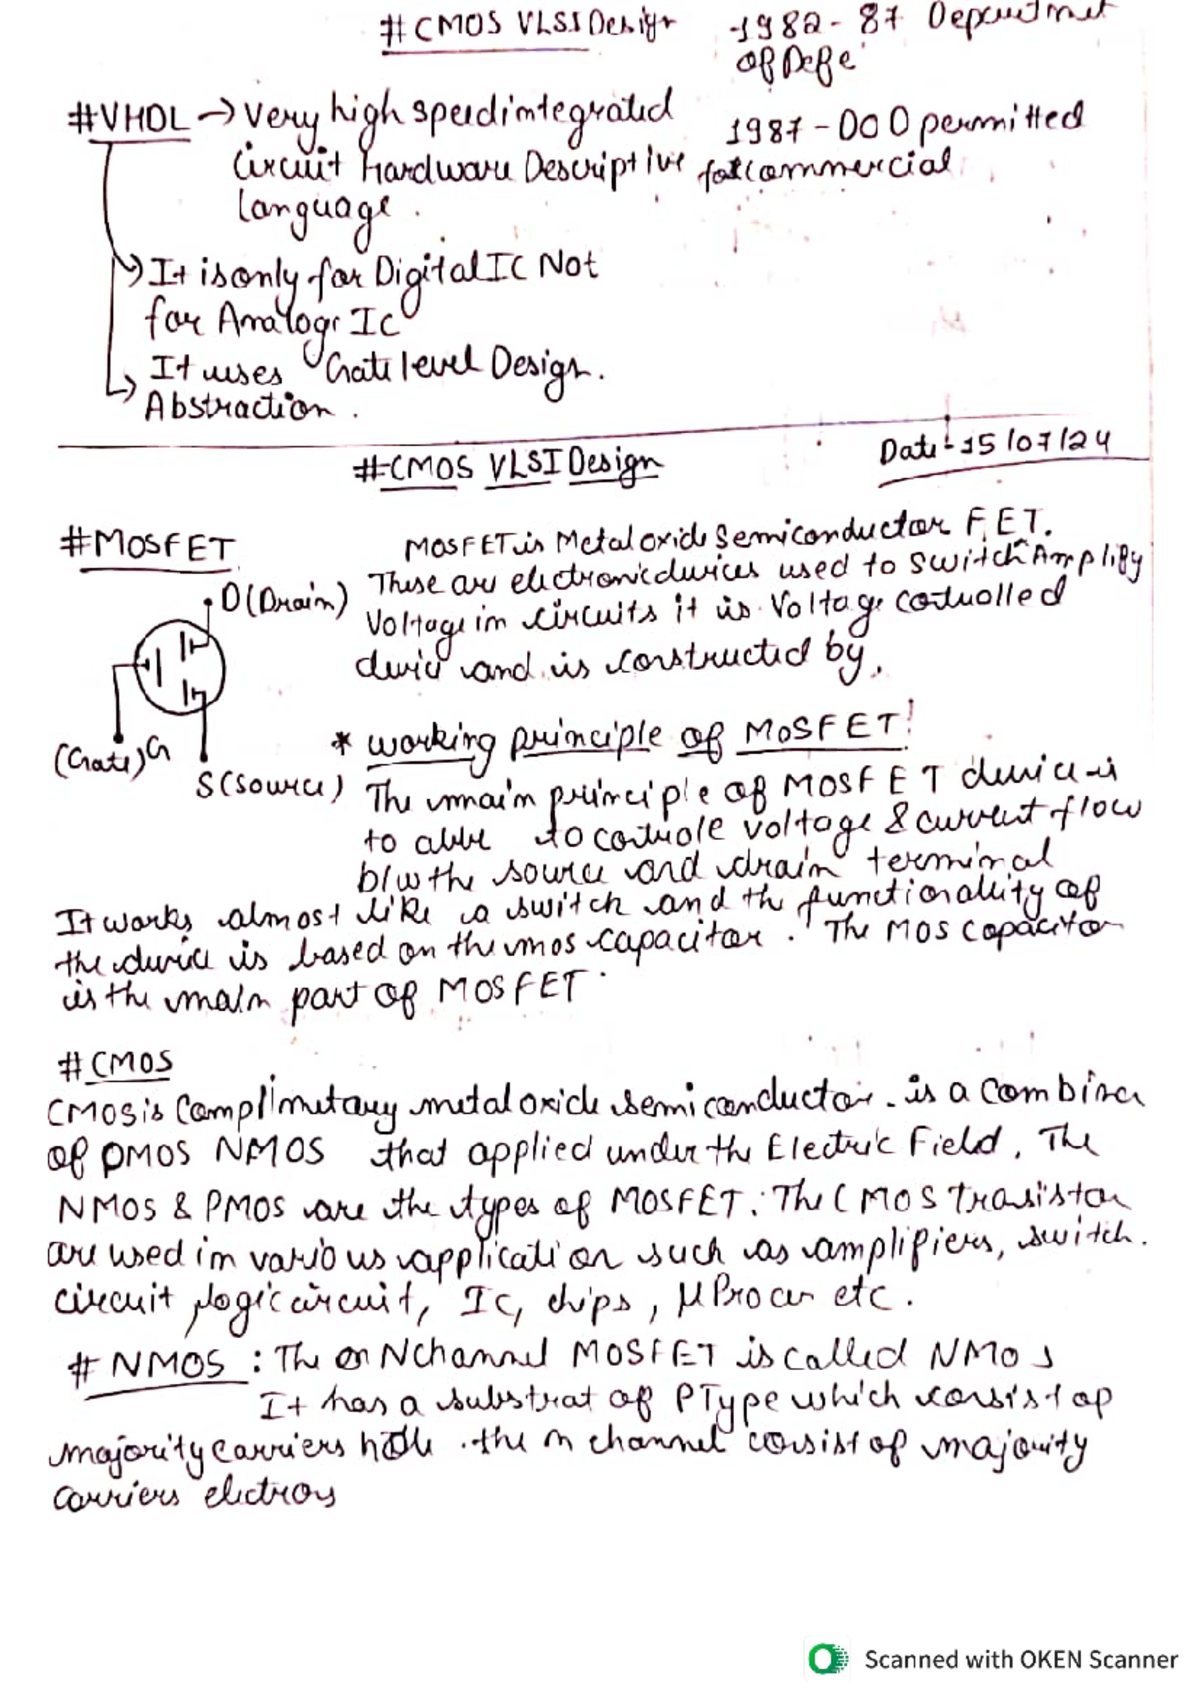 #CMOS VLSI Design
-1982-87 Department
of Defe
#VHDL → Very high speed integrated
circuit Hardware Descriptive
language.
1987-DOD permitted
for commercial
It is only for Digital IC Not
for Analog IC
It uses Gate level Design.
Abstraction.
#CMOS VLSI Design
Date-15/07/24
#MOSFET
D(Drain)
(Gate)G
S(source)
MOSFET is Metal oxide Semiconductor F.ET.
These are electronic devices used to switch Amplify
Voltage in circuits it is Voltage controlled
device and is constructed by.
* working principle of MOSFET!
The main principle of MOSFET device is
to able to controle voltage & current flow
b/w the source and drain terminal
It works almost like a switch and the functionality of
the device is based on the mos capacitor. The MOS capacitor
is the main part of MOSFET.
#CMOS
CMOS is Complimetary metal oxide semiconductor. is a combina
of PMOS NMOS that applied under the Electric Field. The
NMOS & PMOS are the types of MOSFET. The CMOS trasistor
are used in various application such as amplifiers, switch.
circuit, logic circuit, IC, chips, μProcer etc.
#NMOS : The or N channel MOSFET is called NMOS
It has a substrat of P Type which consist of
majority carriers hole. the n channel cosist of majority
carriers electros
Scanned with OKEN Scanner